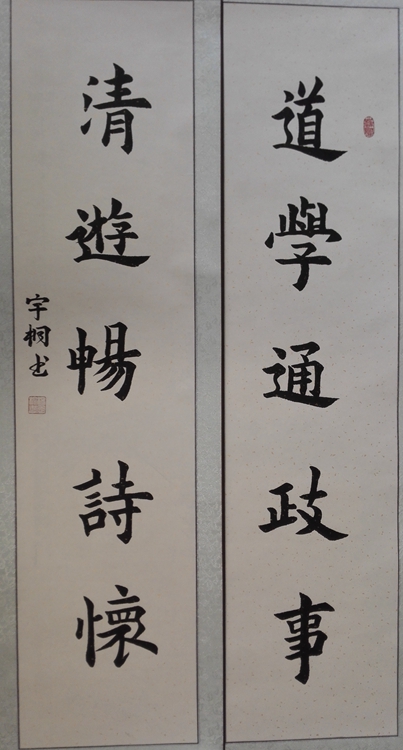 道學通政事
清遊暢詩懷
宇桐书